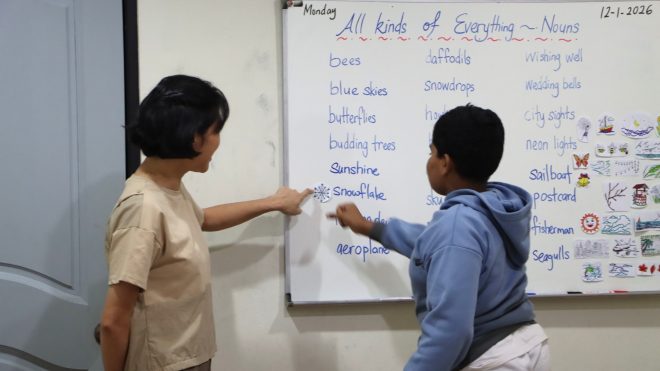 Monday
12-1-2026
All kinds of Everything ~ Nouns
bees
blue skies
butterflies
budding trees
Sunshine
Snowflake
aeroplane
daffodils
snowdrops
wishing well
wedding bells
city sights
neon lights
sailboat
postcard
fisherman
Seagulls